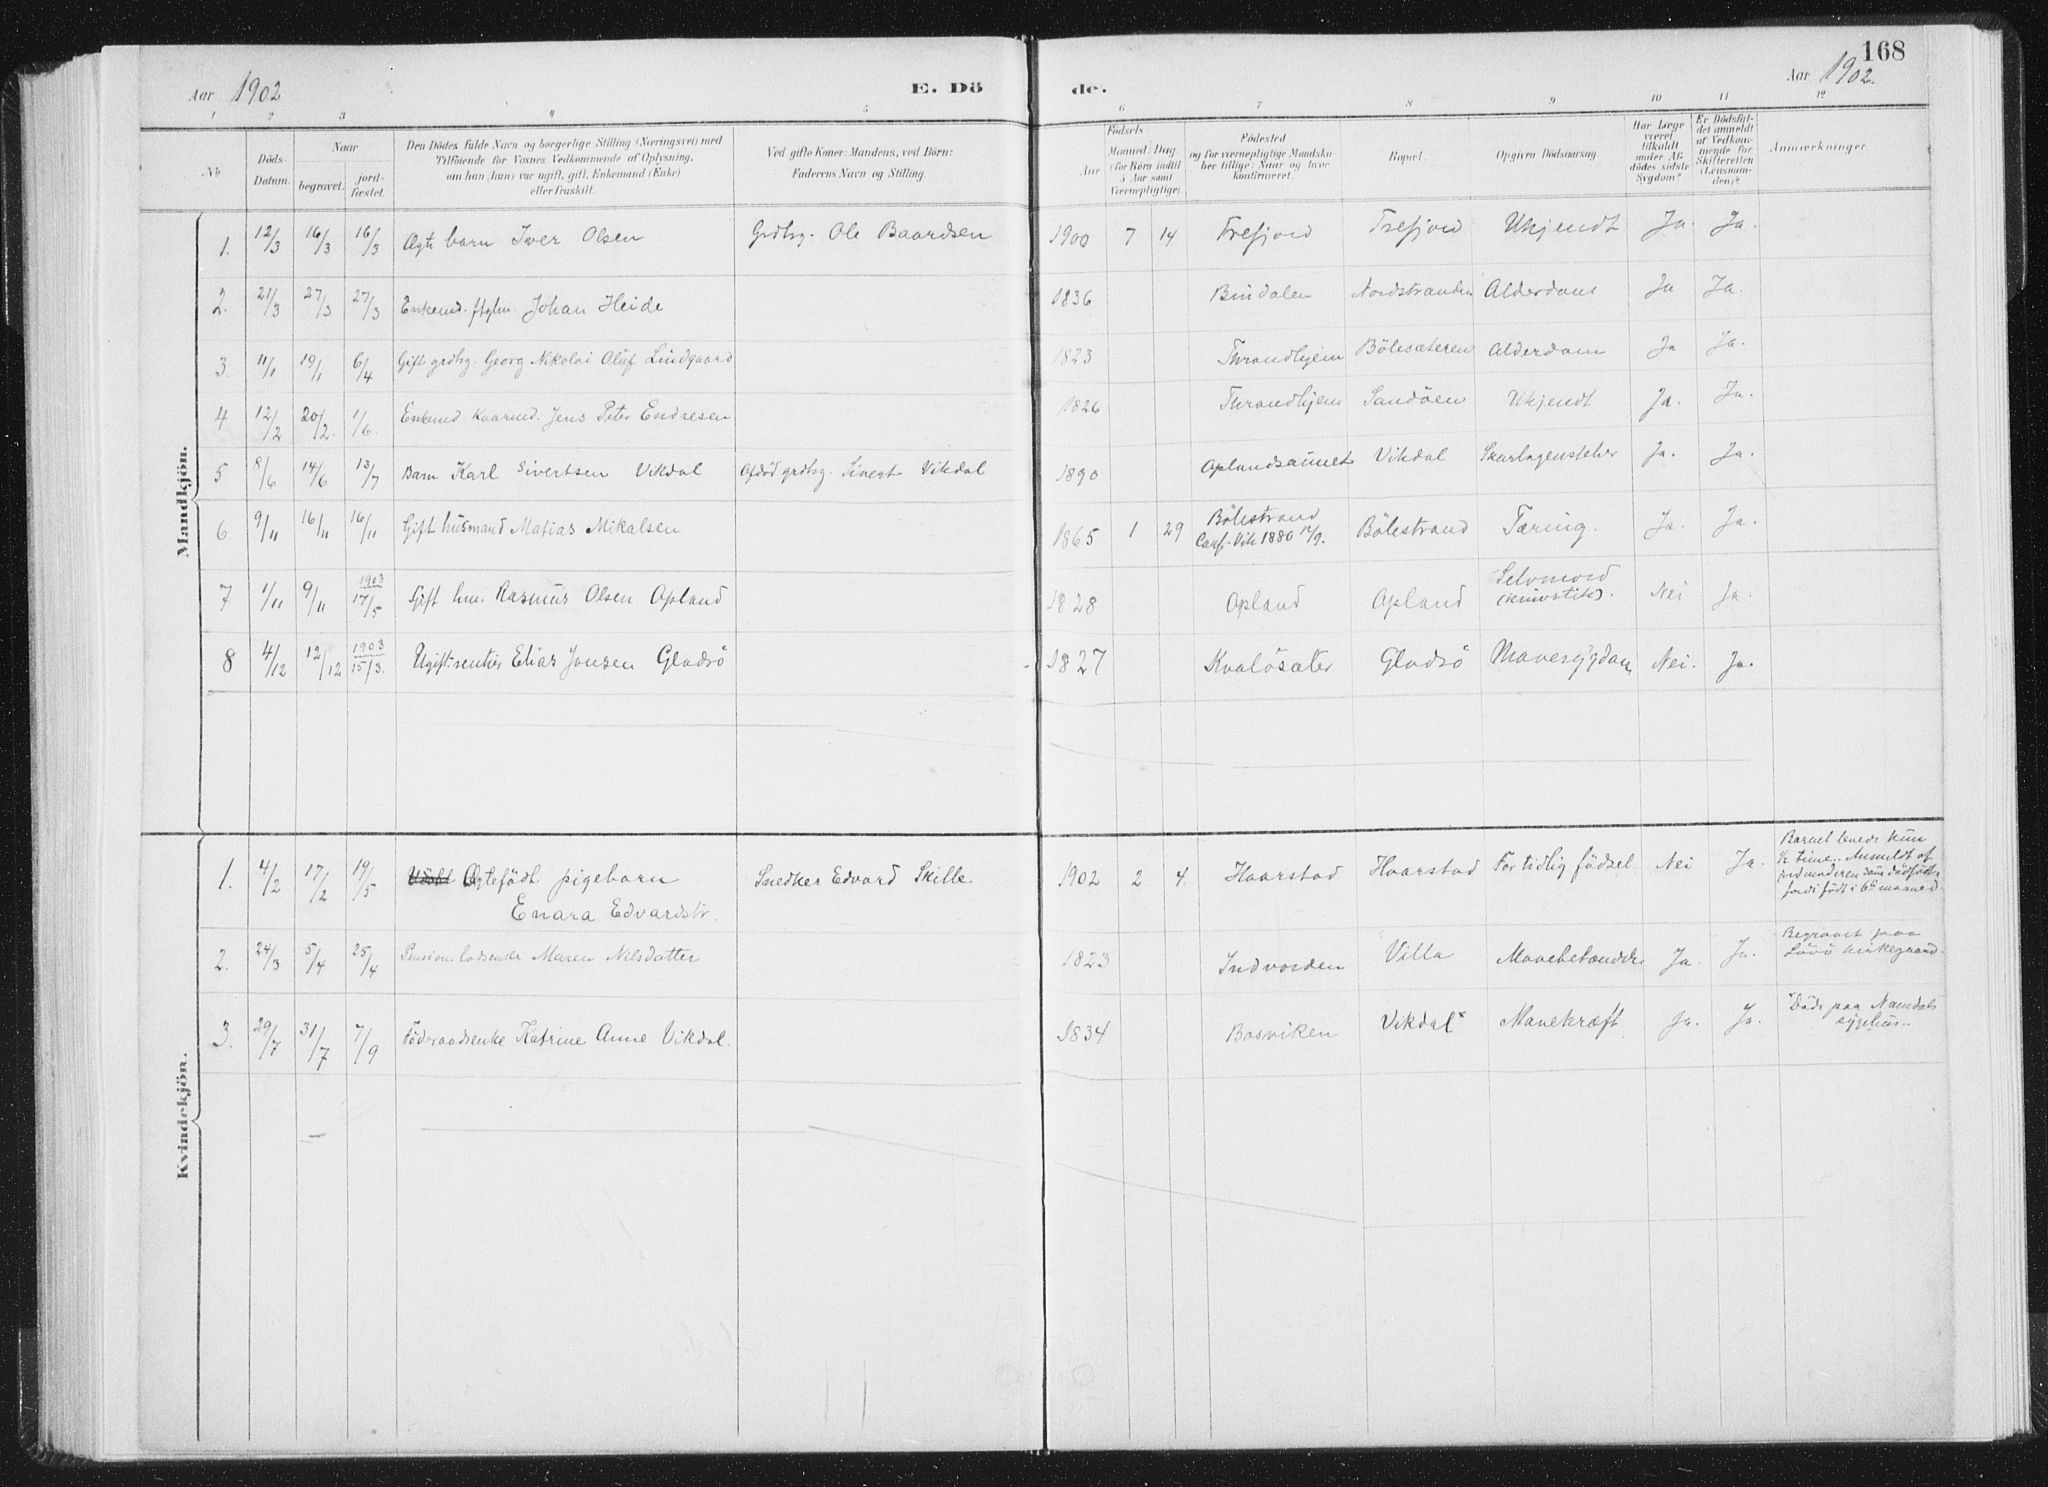 168
Aar 1902
E. Dö
de.
Aar 1902.
1 2 3 4 5 6 7 8 9 10 11 12
No.
Döds-Datum.
Naar
begravet.
jordfæstet.
Den Dödes fulde Navn og borgerlige Stilling (Næringsvei) med
Tilföiende for Voxnes Vedkommende af Oplysning,
om han (hun) var ugift, gift, Enkemand (Enke)
eller fraskilt.
Ved gifte Koner: Mandens, ved Börn:
Faderens Navn og Stilling.
Födsels
Aar
Maaned Dag
(for Börn indtil
5 Aar samt
Værnepligtige).
Födested
og for værnepligtige Mandskaber tillige: Naar og hvor
konfirmeret.
Bopæl.
Opgiven Dödsaarsag.
Har Læge
været
tilkaldt
under Afdödes sidste
Sygdom?
Er Dödsfaldet anmeldt
af Vedkommende for
Skifteretten
(Lensmanden)?
Anmærkninger
Mandkjön.
1. 12/3 16/3 16/3 Ægte barn Iver Olsen Grdbrg. Ole Baardsen 1900 7 14 Trefjord Trefjord Ukjendt Ja. Ja.
2. 21/3 27/3 27/3 Enkemd. Johan Heide 1836 Bindalen Nordstranden Alderdom Ja Ja.
3. 11/1 19/1 6/4 Gift grdbrg. Georg Nikolai Oluf Lindgaard 1823 Thrandhjem Bölesæteren Alderdom Ja Ja.
4 12/2 20/2. 1/6. Enkemd. Kaarmd. Jens Peter Endresen 1826 Thrandhjem Sandöen Ukjendt Ja. Ja.
5 8/6 14/6 13/7 Barn Karl Sivertsen Vikdal Afdöd grdbrg. Sivert Vikdal 1890 Oplandsaunet Vikdal Skarlagensfeber Ja. Ja.
6 9/11 16/11 16/11 Gift husmand Matias Mikalsen 1865 1 29 Bölestrand
Conf. Vik 1880 12/9. Bölestrand Tæring. Ja. Ja.
7 1/11 9/11 1903 17/5 Gift hm. Rasmus Olsen Opland 1828 Opland Opland Selvmord
(knivstik). Nei Ja.
8 4/12 12/12 1903 15/3. Ugift rentier Elias Jonsen Gladsö 1827 Kvalösæter Gladsö Mavesygdom Nei. Ja.
Kvindekjön.
1. 4/2 17/2 19/5 Ægtefödt pigebarn
Enara Edvardstr. Snedker Edvard Skille 1902 2 4. Haarstad Haarstad For tidlig födsel Nei Ja.
Barnet levede kun
1/2 time. Anmeldt af
jordmoderen som dödfödt,
fordi födt i 6te maaned.
2. 24/3 5/4 25/4 Pension. lodsenke Maren Nilsdatter 1823 Indvorden Villa Mavebetændelse Ja. Ja.
Begravet paa
Lövö kirkegaard.
3. 29/7 31/7 7/9 Föderaadsenke Katrine Anne Vikdal. 1834 Bosviken Vikdal* Mavekræft Ja. Ja.
*Döde paa Namdals
sygehus.